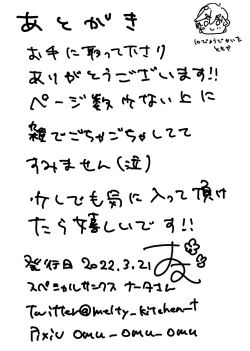 あとがき
お手に取って下さり
ありがとうございます!!
ページ数少ない上に
雑でごちゃごちゃしてて
すみません(泣)
少しでも気に入って頂け
たら嬉しいです!!
発行日 2022.3.21
スペシャルサンクス ナータさん
Twitter@melty_kitchen_t
Pixiv omu_omu_omu